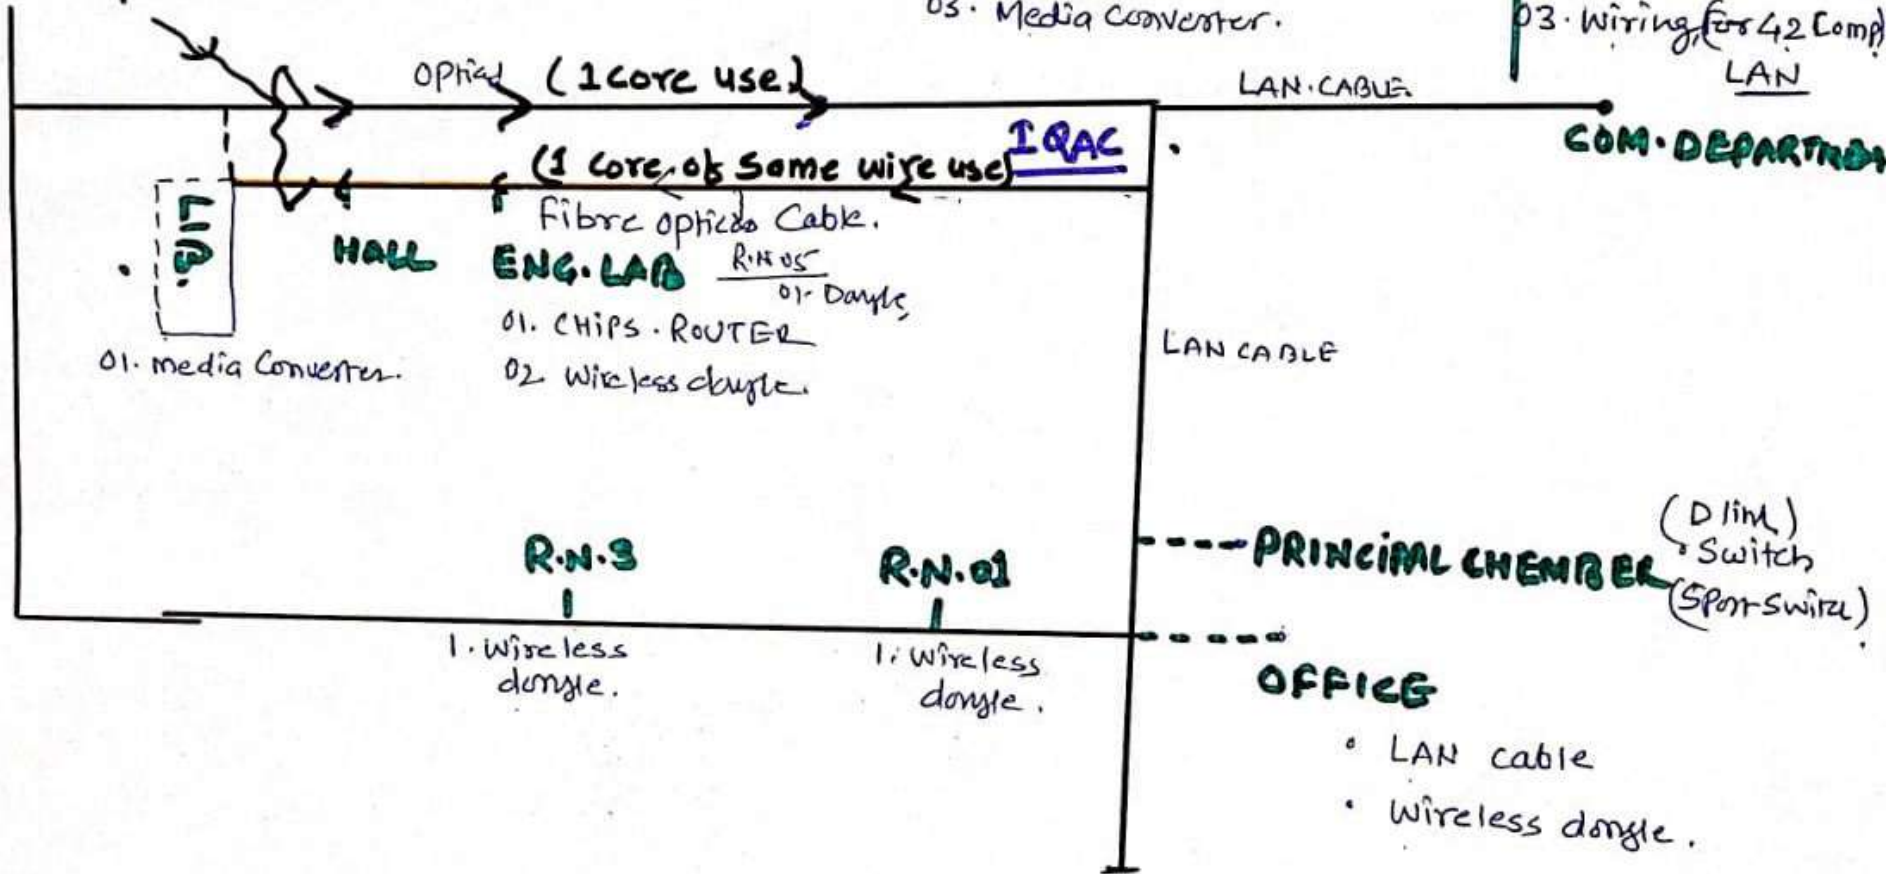 03. Media Converter.
03. Wiring (for 42 Comp)
LAN
Optical (1 core use)
LAN. CABLE.
IQAC
COM. DEPARTMEN
(1 core of same wire use)
Fibre optical Cable.
HALL
ENG. LAB
R.N 05
01- Dongle
01. CHIPS. ROUTER
02 Wireless dongle.
01. media Converter.
LAN CABLE
R.N.3
R.N.01
1. Wireless
dongle.
1. Wireless
dongle.
PRINCIPAL CHEMBER
(D link)
Switch
(5 Port Switch)
OFFICE
• LAN cable
• Wireless dongle.